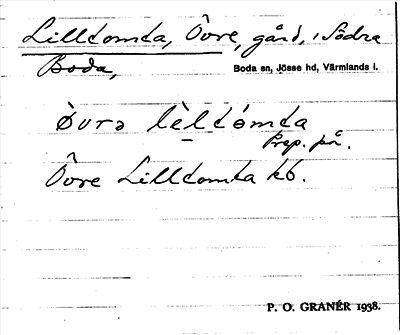 Lilltomta, Övre, gård, i Södra
Boda,
Boda sn, Jösse hd, Värmlands l.
övrə lèltómta
Prep. på.
Övre Lilltomta kb.
P. O. GRANÉR 1938.